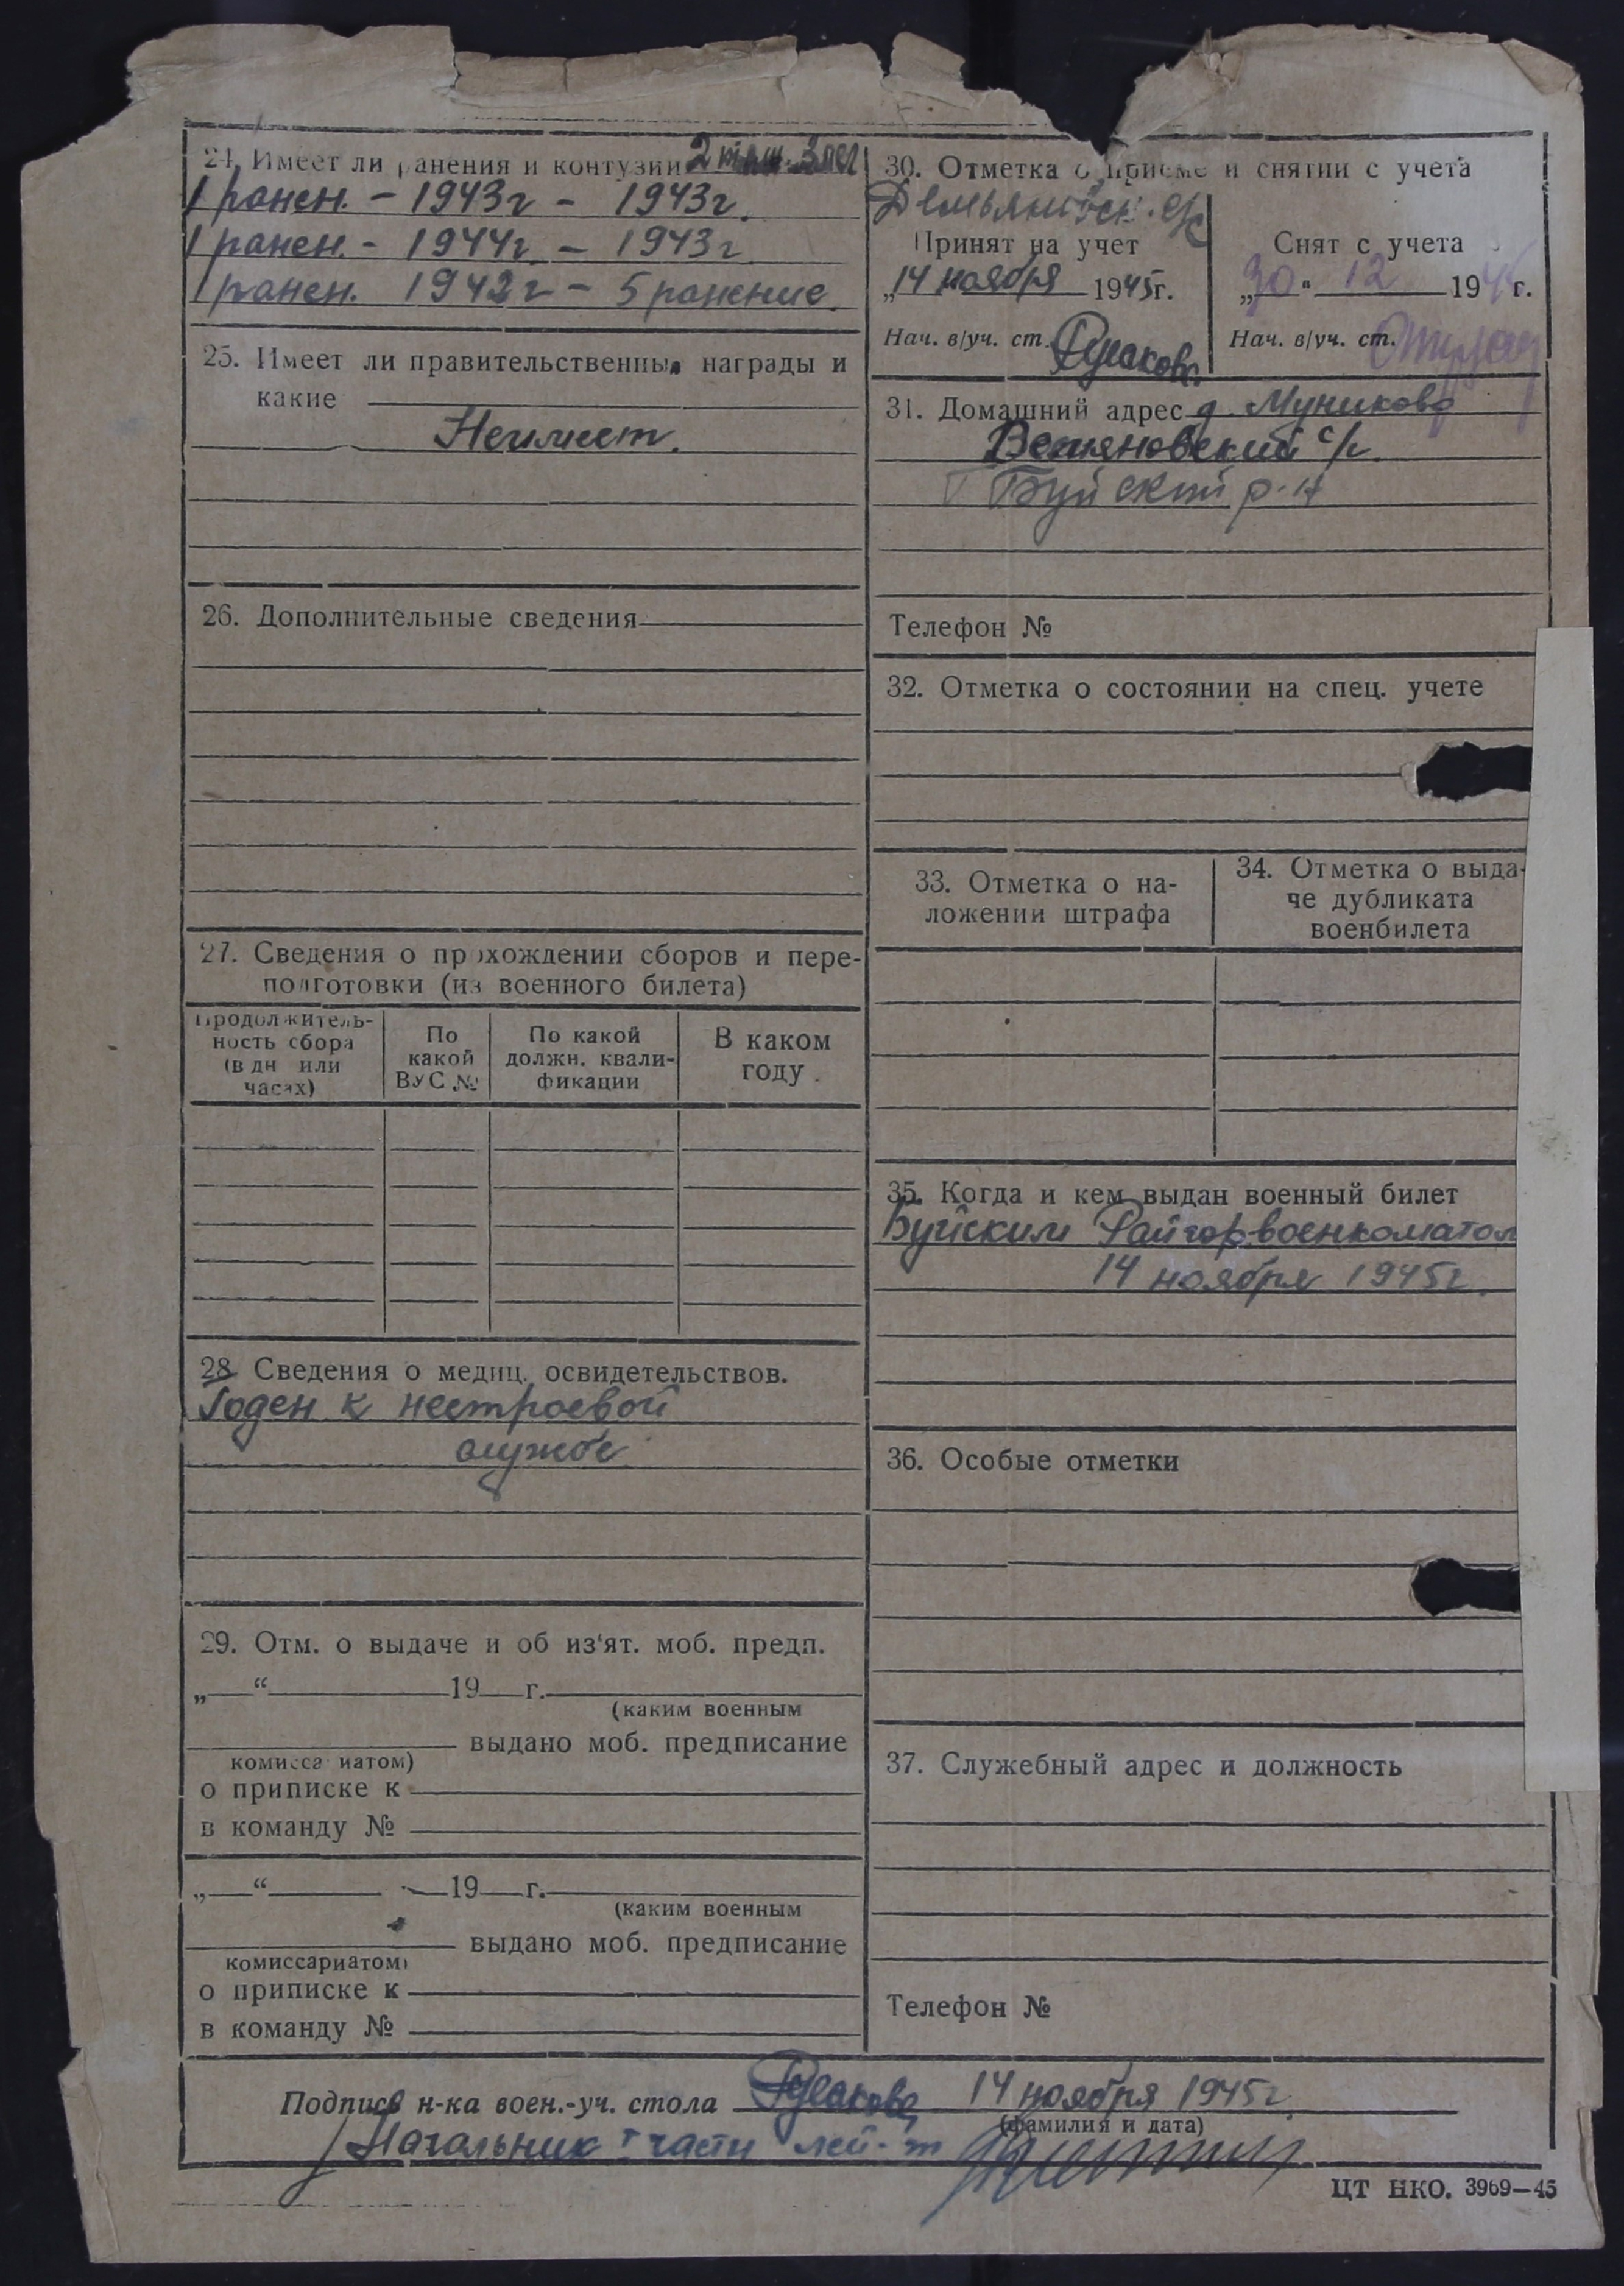 24. Имеет ли ранения и контузии 2 тяж. 3 лег
1 ранен. – 1943г – 1943г.
1 ранен. – 1944г. – 1943г
1 ранен. 1942г – 5 ранение.
25. Имеет ли правительственные награды и
какие
Неимеет.
26. Дополнительные сведения
27. Сведения о прохождении сборов и пере-
подготовки (из военного билета)
Продолжитель-
ность сбора
(в дн или
часах)
По
какой
ВУС №
По какой
должн. квали-
фикации
В каком
году
28 Сведения о медиц. освидетельствов.
Годен к нестроевой
службе
29. Отм. о выдаче и об из‘ят. моб. предп.
„ “ 19 г.
(каким военным
выдано моб. предписание
комиссариатом)
о приписке к
в команду №
„ “ 19 г.
(каким военным
выдано моб. предписание
комиссариатом)
о приписке к
в команду №
30. Отметка о приеме и снятии с учета
Принят на учет
„14 ноября 1945г.
Нач. в/уч. ст. Русакова
Снят с учета
„30“ 12 19 г.
Нач. в/уч. ст.
31. Домашний адрес д. Муниково
с/с
Буйский р-н
Телефон №
32. Отметка о состоянии на спец. учете
33. Отметка о на-
ложении штрафа
34. Отметка о выда-
че дубликата
военбилета
35. Когда и кем выдан военный билет
Буйским Райгорвоенкоматом
14 ноября 1945г.
36. Особые отметки
37. Служебный адрес и должность
Телефон №
Подпись н-ка воен.-уч. стола Русакова 14 ноября 1945г.
(фамилия и дата)
Начальник части лей-т
ЦТ НКО. 3969—45